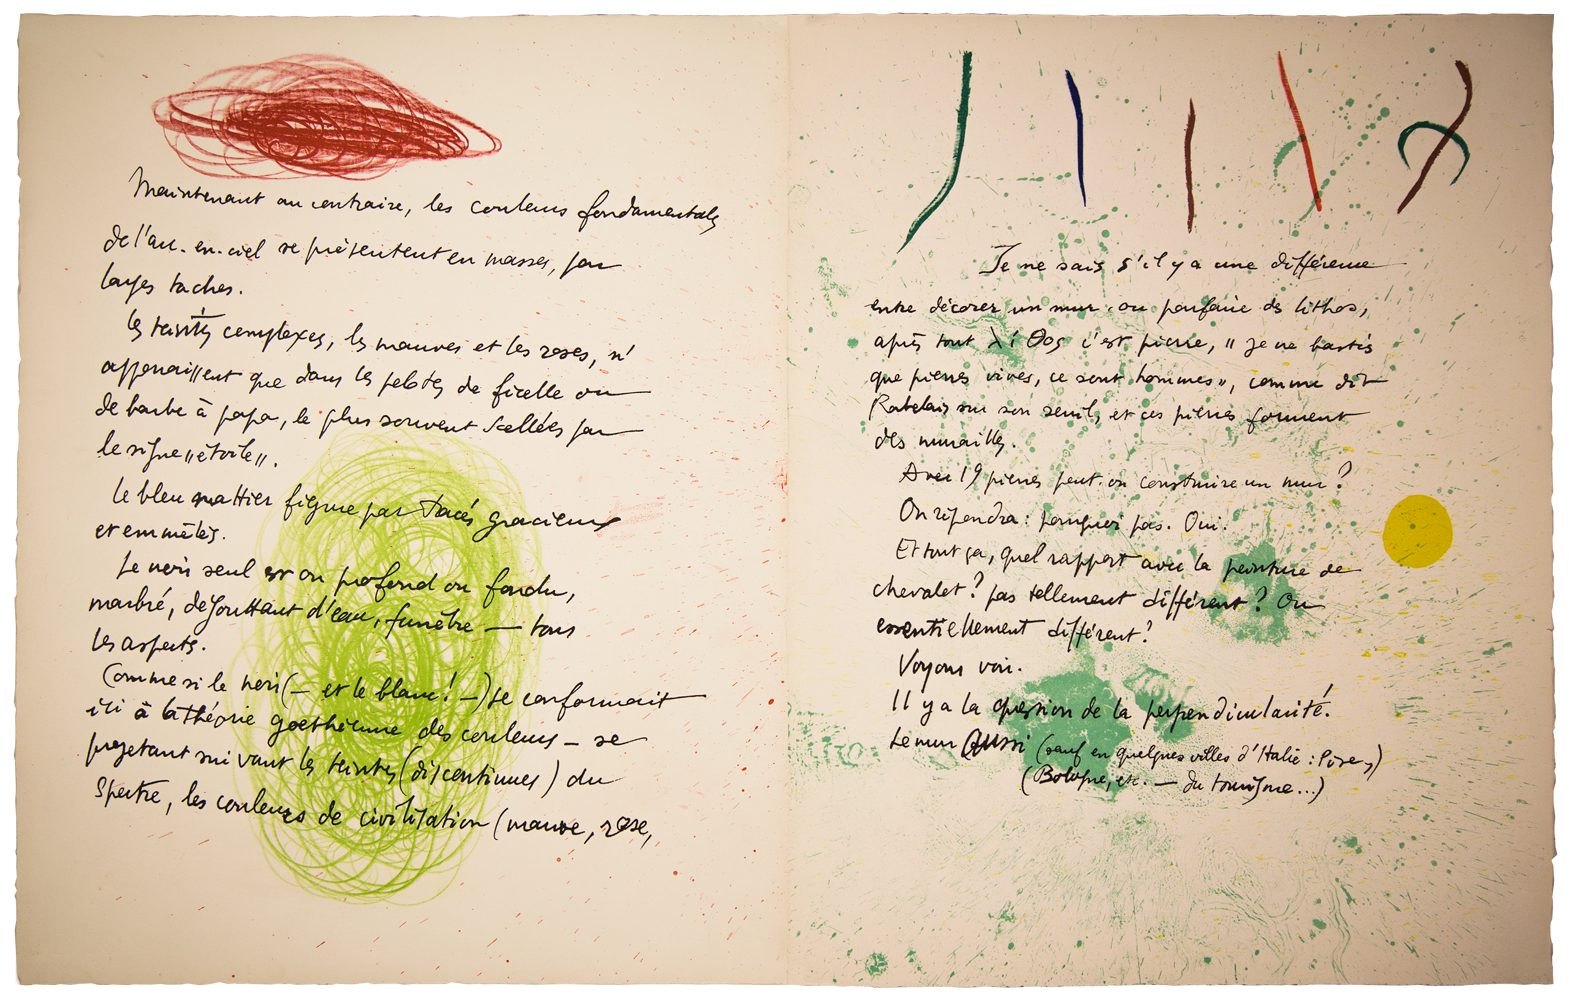 Maintenant au contraire, les couleurs fondamentales
de l'arc-en-ciel se présentent en masses, par
larges taches.
les teintes complexes, les mauves et les roses, n'
apparaissent que dans les pelotes de ficelle ou
de barbe à papa, le plus souvent scellées par
le signe "étoile".
Le bleu mattier figure par tracés gracieux
et emmêlés.
Le noir seul est ou profond ou fondu,
marbré, dégouttant d'eau, funèbre — tous
les aspects.
Comme si le noir (— et le blanc! —) se conformait
ici à la théorie goethéenne des couleurs — se
projetant suivant les teintes (discontinues) du
Spectre, les couleurs de civilisation (mauve, rose,
Je ne sais s'il y a une différence
entre décorer un mur ou parfaire des lithos,
après tout λίθος c'est pierre, "je ne bastis
que pierres vives, ce sont hommes", comme dit
Rabelais sur son seuil, et ces pierres forment
des murailles.
Avec 19 pierres peut-on construire un mur?
On répondra: pourquoi pas. Oui.
Et tout ça, quel rapport avec la peinture de
chevalet? pas tellement différent? Ou
essentiellement différent?
Voyons voir.
Il y a la question de la perpendicularité.
Le mur aussi (sauf en quelques villes d'Italie: Pise,)
(Bologne, etc. — du tourisme...)